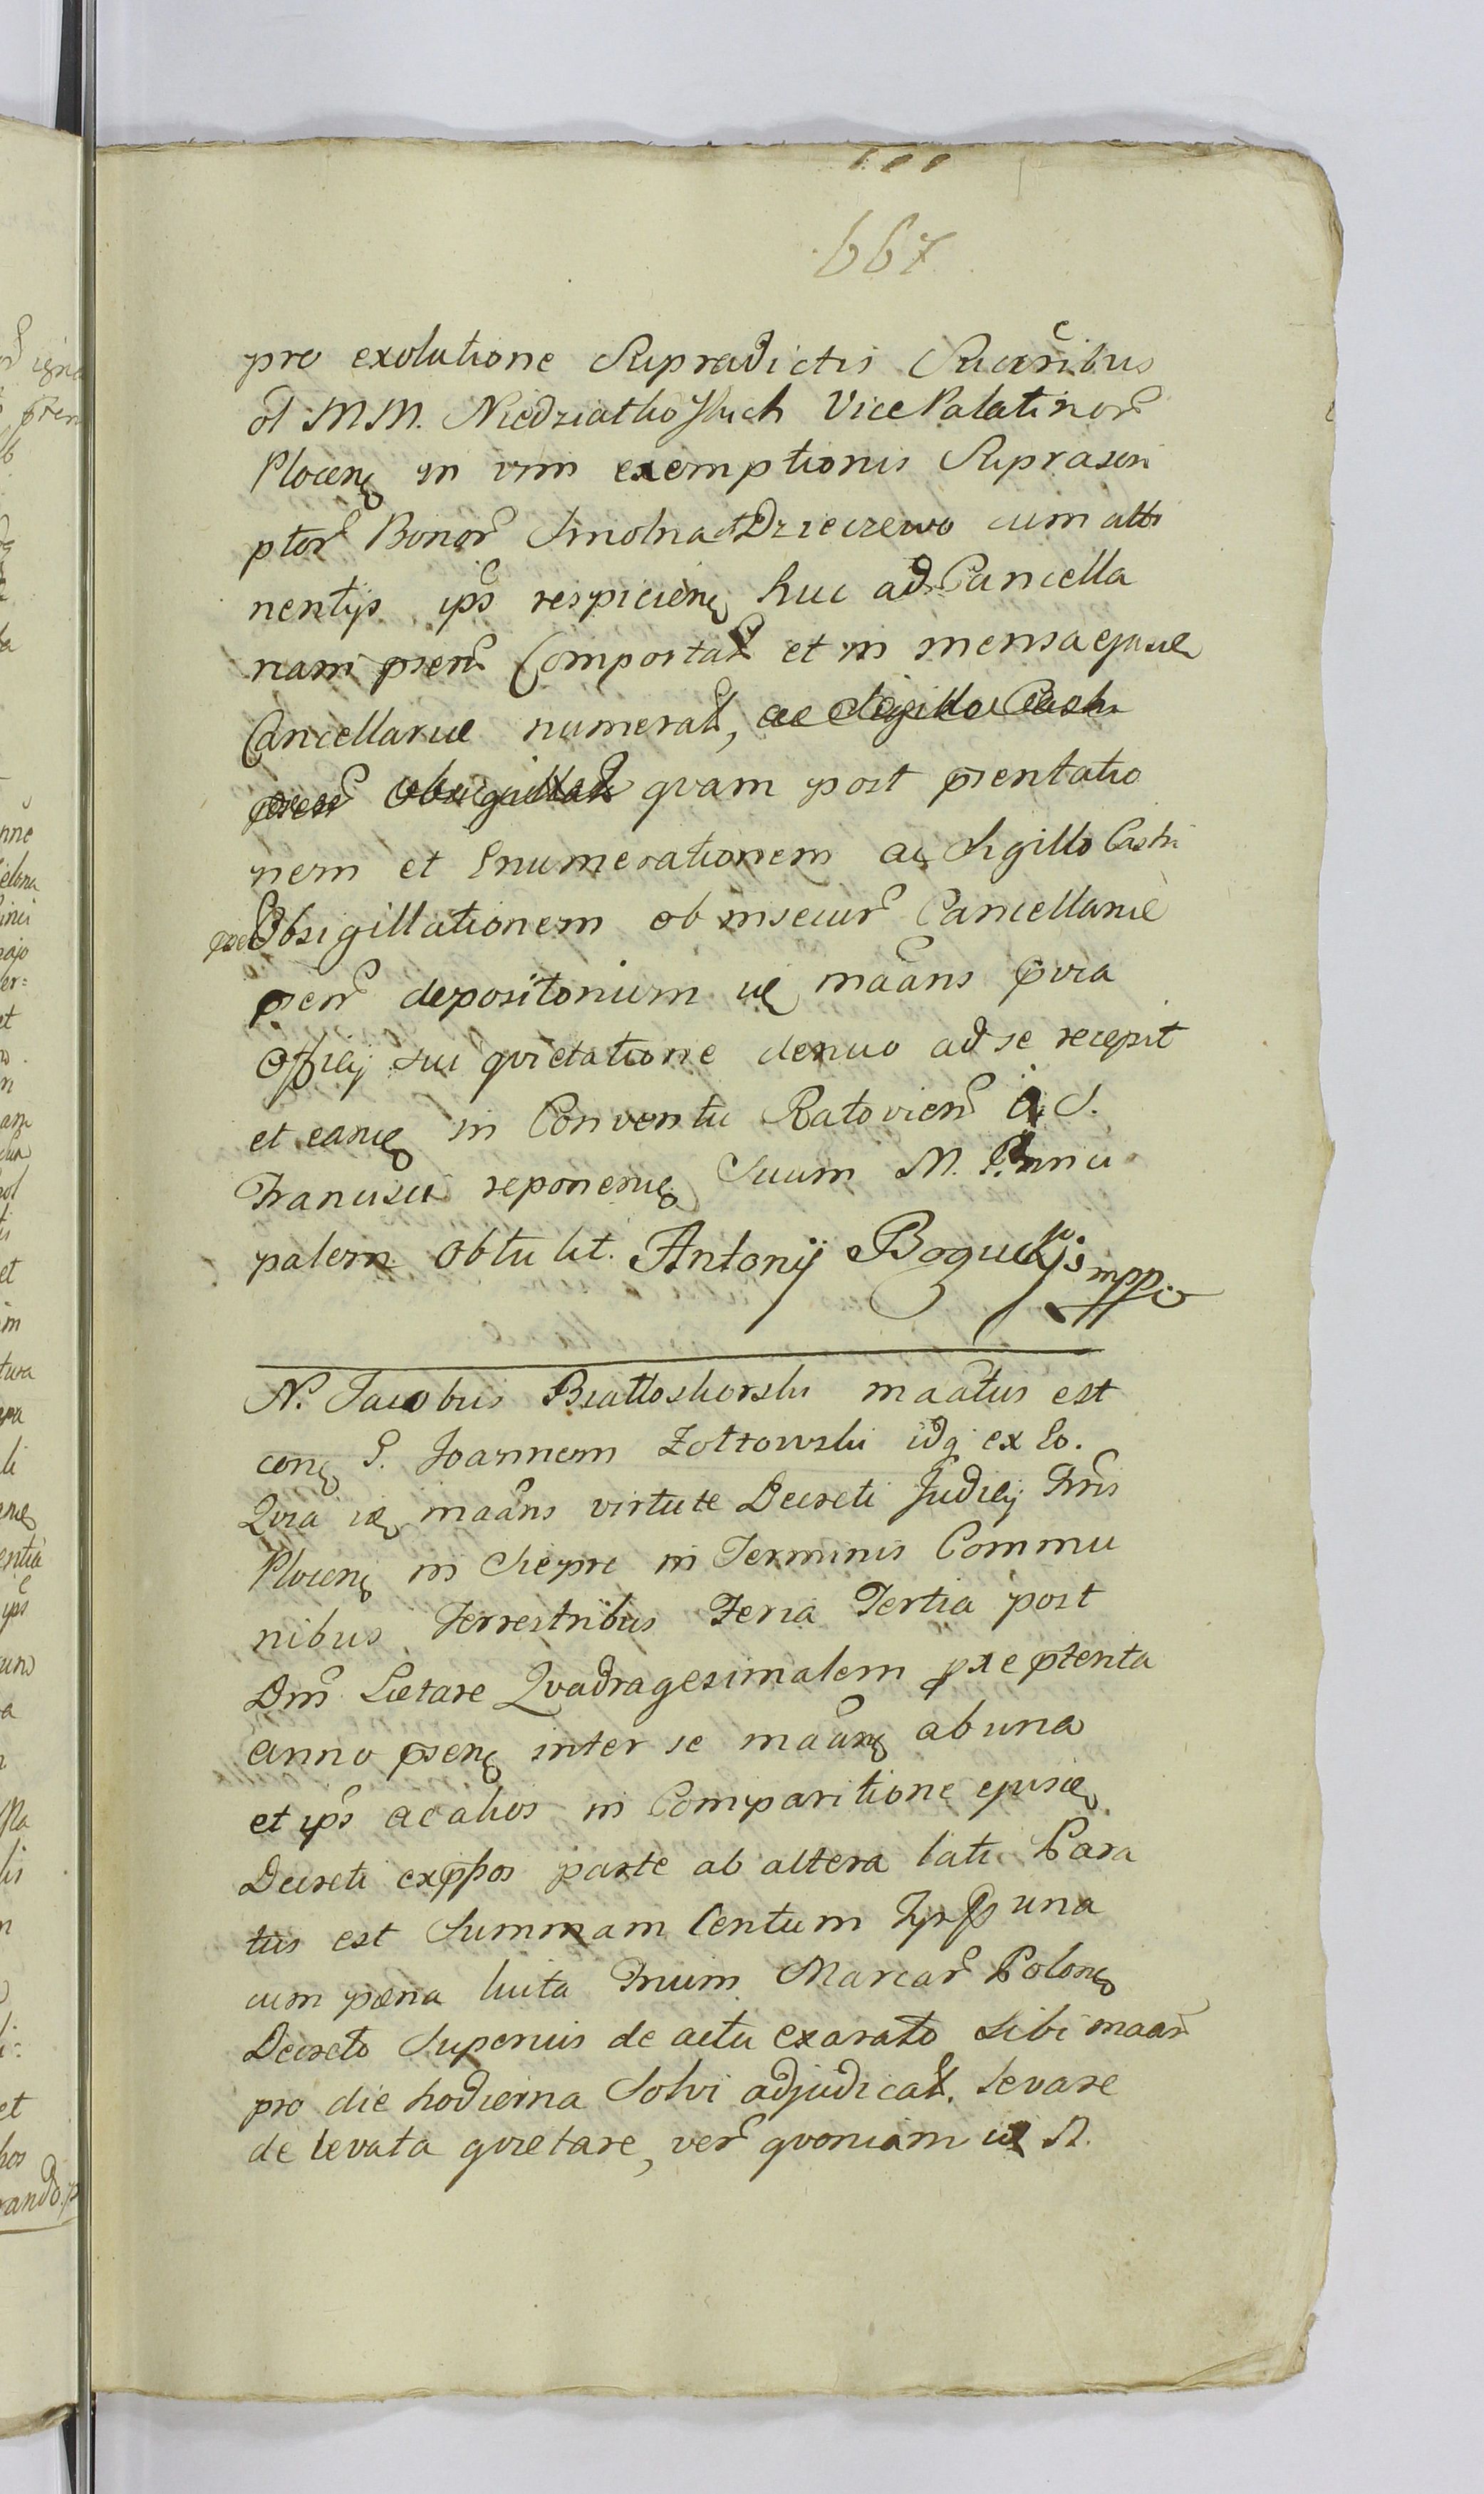 667
pro exolutione Supradictis Sucüribus
ol MM. Niedziałkoskich Vice Palatinor
Plocen in vim exemptionis Suprascri
ptor Bonor Smolna et Dzieczewo cum atti
nentijs ips respicien huc ad Cancella
riam psen Comportat et in mensa ejusd
Cancellariæ numerat, ac Sigillo Castri
psen obsigillat qvam post psentatio
nem et Enumerationem ac Sigillo Castri
psen Obsigillationem ob insecur Cancellariæ
psen depositorium id maans pvia
Officij sui qvietatione denuo ad se recepit
et eand in Conventu Ratovien S.
Francisci reponend Suum M. Princi
palem obtulit. Antonij Boguckj mpp
N. Jacobus Białłoskorski maatus est
con G. Joannem Żołtowski idq ex Eo.
Qvia id maans virtute Decreti Judicij Tris
Plocen in Sieprc in Terminis Commu
nibus Terrestribus Feria Tertia post
Dm Lætare Qvadragesimalem pxe ptenta
anno psen inter se maan ab una
et ips ac alios in Comparitione ejusd
Decreti expssos parte ab altera lati Para
tus est Summam Centum Typs una
cum pæna luita Trium Marcar Polon
Decreto Superius de actu exarato Sibi maan
pro die hodierna Solvi adjudicat. levare
de levata qvietare, ver qvoniam id N.